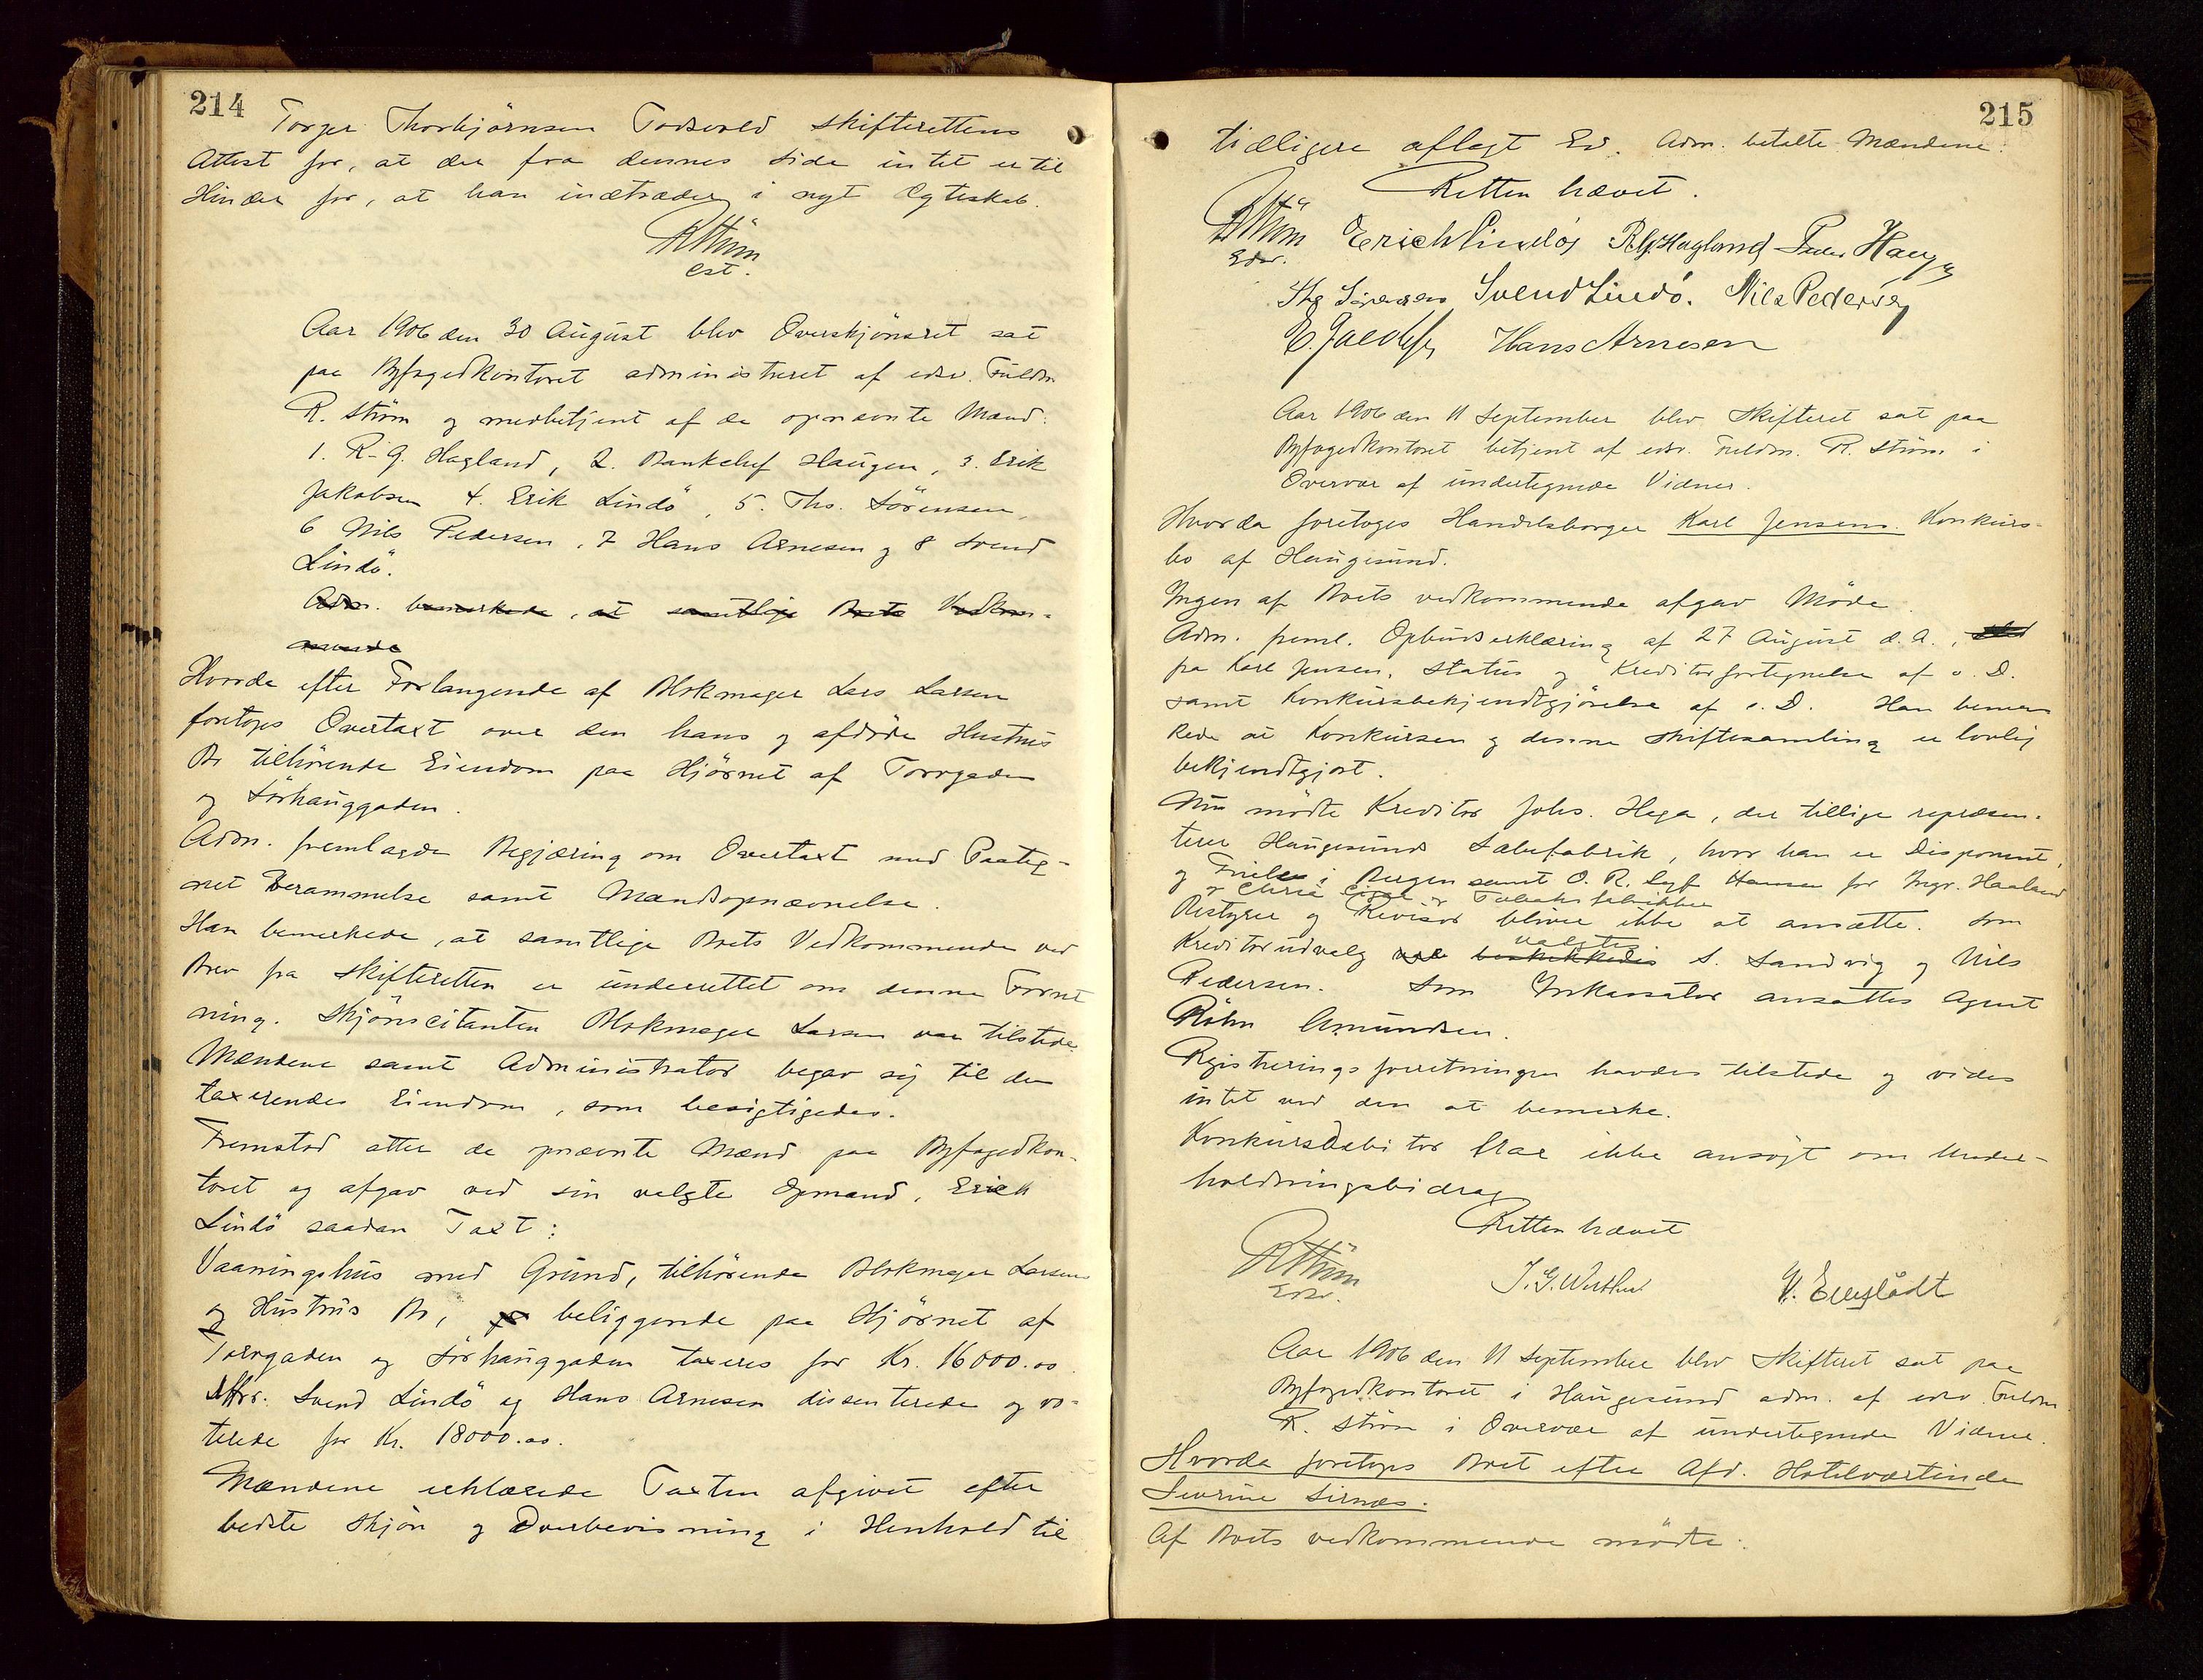 214
Torger Thorbjørnsen Todsvold skifterettens
Attest for, at der fra dennes Side intet er til
Hinder for, at han indtræder i nyt Ægteskab.
RStrøm
cst.
Aar 1906 den 30 August blev Overskjønsret sat
paa Byfogedkontoret administreret af edsv. Fuldm
R. Strøm og medbetjent af de opnævnte Mænd:
1. R. G. Hagland, 2. Bankchef Haugen, 3. Erik
Jakobsen 4. Erik Lindø, 5. Ths. Sørensen,
6 Nils Pedersen, 7 Hans Arnesen og 8 Svend
Lindø.
Adm. bemerkede, at samtlige Boets Vedkom-
mende
Hvorda efter Forlangende af Blokmager Lars Larsen
foretoges Overtaxt over den hans og afdøde Hustrus
Bo tilhørende Eiendom paa Hjørnet af Torvgaden
og Sørhauggaden.
Adm. fremlagde Begjæring om Overtaxt med Paateg-
net Berammelse samt Mandsopnævnelse.
Han bemerkede, at samtlige Boets Vedkommende ved
Brev fra Skifteretten er underrettet om denne Forret
ning. Skjønscitanten Blokmager Larsen var tilstede.
Mændene samt Administrator begav sig til den
taxerendes Eiendom, som besigtigedes.
Fremstod atter de opnævnte Mænd paa Byfogedkon-
toret og afgav ved sin valgte Opmand, Erick
Lindø saadan Taxt:
Vaaningshus med Grund, tilhørende Blokmager Larsens
og Hustrus Bo, beliggende paa Hjørnet af
Torvgaden og Sørhauggaden taxeres for Kr. 16000.00
Mrr. Svend Lindø og Hans Arnesen dissenterede og vo-
terede for Kr. 18000.00.
Mændene erklærede Taxten afgivet efter
bedste Skjøn og Overbevisning i Henhold til
215
tidligere aflagt Ed. Adm. betalte Mændene.
Retten hævet.
RStrøm Erich Lindøs R.G.Hagland Haugen
Edsv.
Ths Sørensen Svend Lindø. Nils Pedersen
E. Jacobsen Hans Arnesen
Aar 1906 den 11 September blev Skifteret sat paa
Byfogedkontoret betjent af edsv. Fuldm. R. Strøm i
Overvær af undertegnede Vidner.
Hvorda foretoges Handelsborger Karl Jensens Konkurs-
bo af Haugesund.
Ingen af Boets vedkommende afgav Møde.
Adm. freml. Opbudserklæring af 27 August d. A.,
fra Karl Jensen, Status og Kreditorfortegnelse af s. D.
samt Konkursbekjendtgjørelse af s. D. Han bemær
kede at Konkursen og denne Skiftesamling er lovlig
bekjendtgjort.
Nu mødte Kreditor Johs. Haga, der tillige repræsen-
terer Haugesunds Sæbefabrik, hvor han er Disponent,
og Friele i Bergen samt O. R. Lyf Hansen for Ingv. Haaland
og Chria Cigar og Tobaksfabrikker
Bestyrer og Revisor bliver ikke at ansætte. Som
valgtes
Kreditorudvalg beskikkedes S. Sandvig og Nils
Pedersen. Som Inkassator ansattes Agent
Røhn Amundsen.
Registreringsforretningen havdes tilstede og vides
intet ved den at bemerke.
Konkursdebitor har ikke ansøgt om Under-
holdningsbidrag
Retten hævet
RStrøm
Edsv.
Aar 1906 den 11 September blev Skifteret sat paa
Byfogedkontoret i Haugesund adm. af edsv Fuldm.
R. Strøm i Overvær af undertegnede Vidner.
Hvorda foretoges Boet efter Afd. Hotelværtinde
Severine Sirnæs.
Af Boets vedkommende mødte: